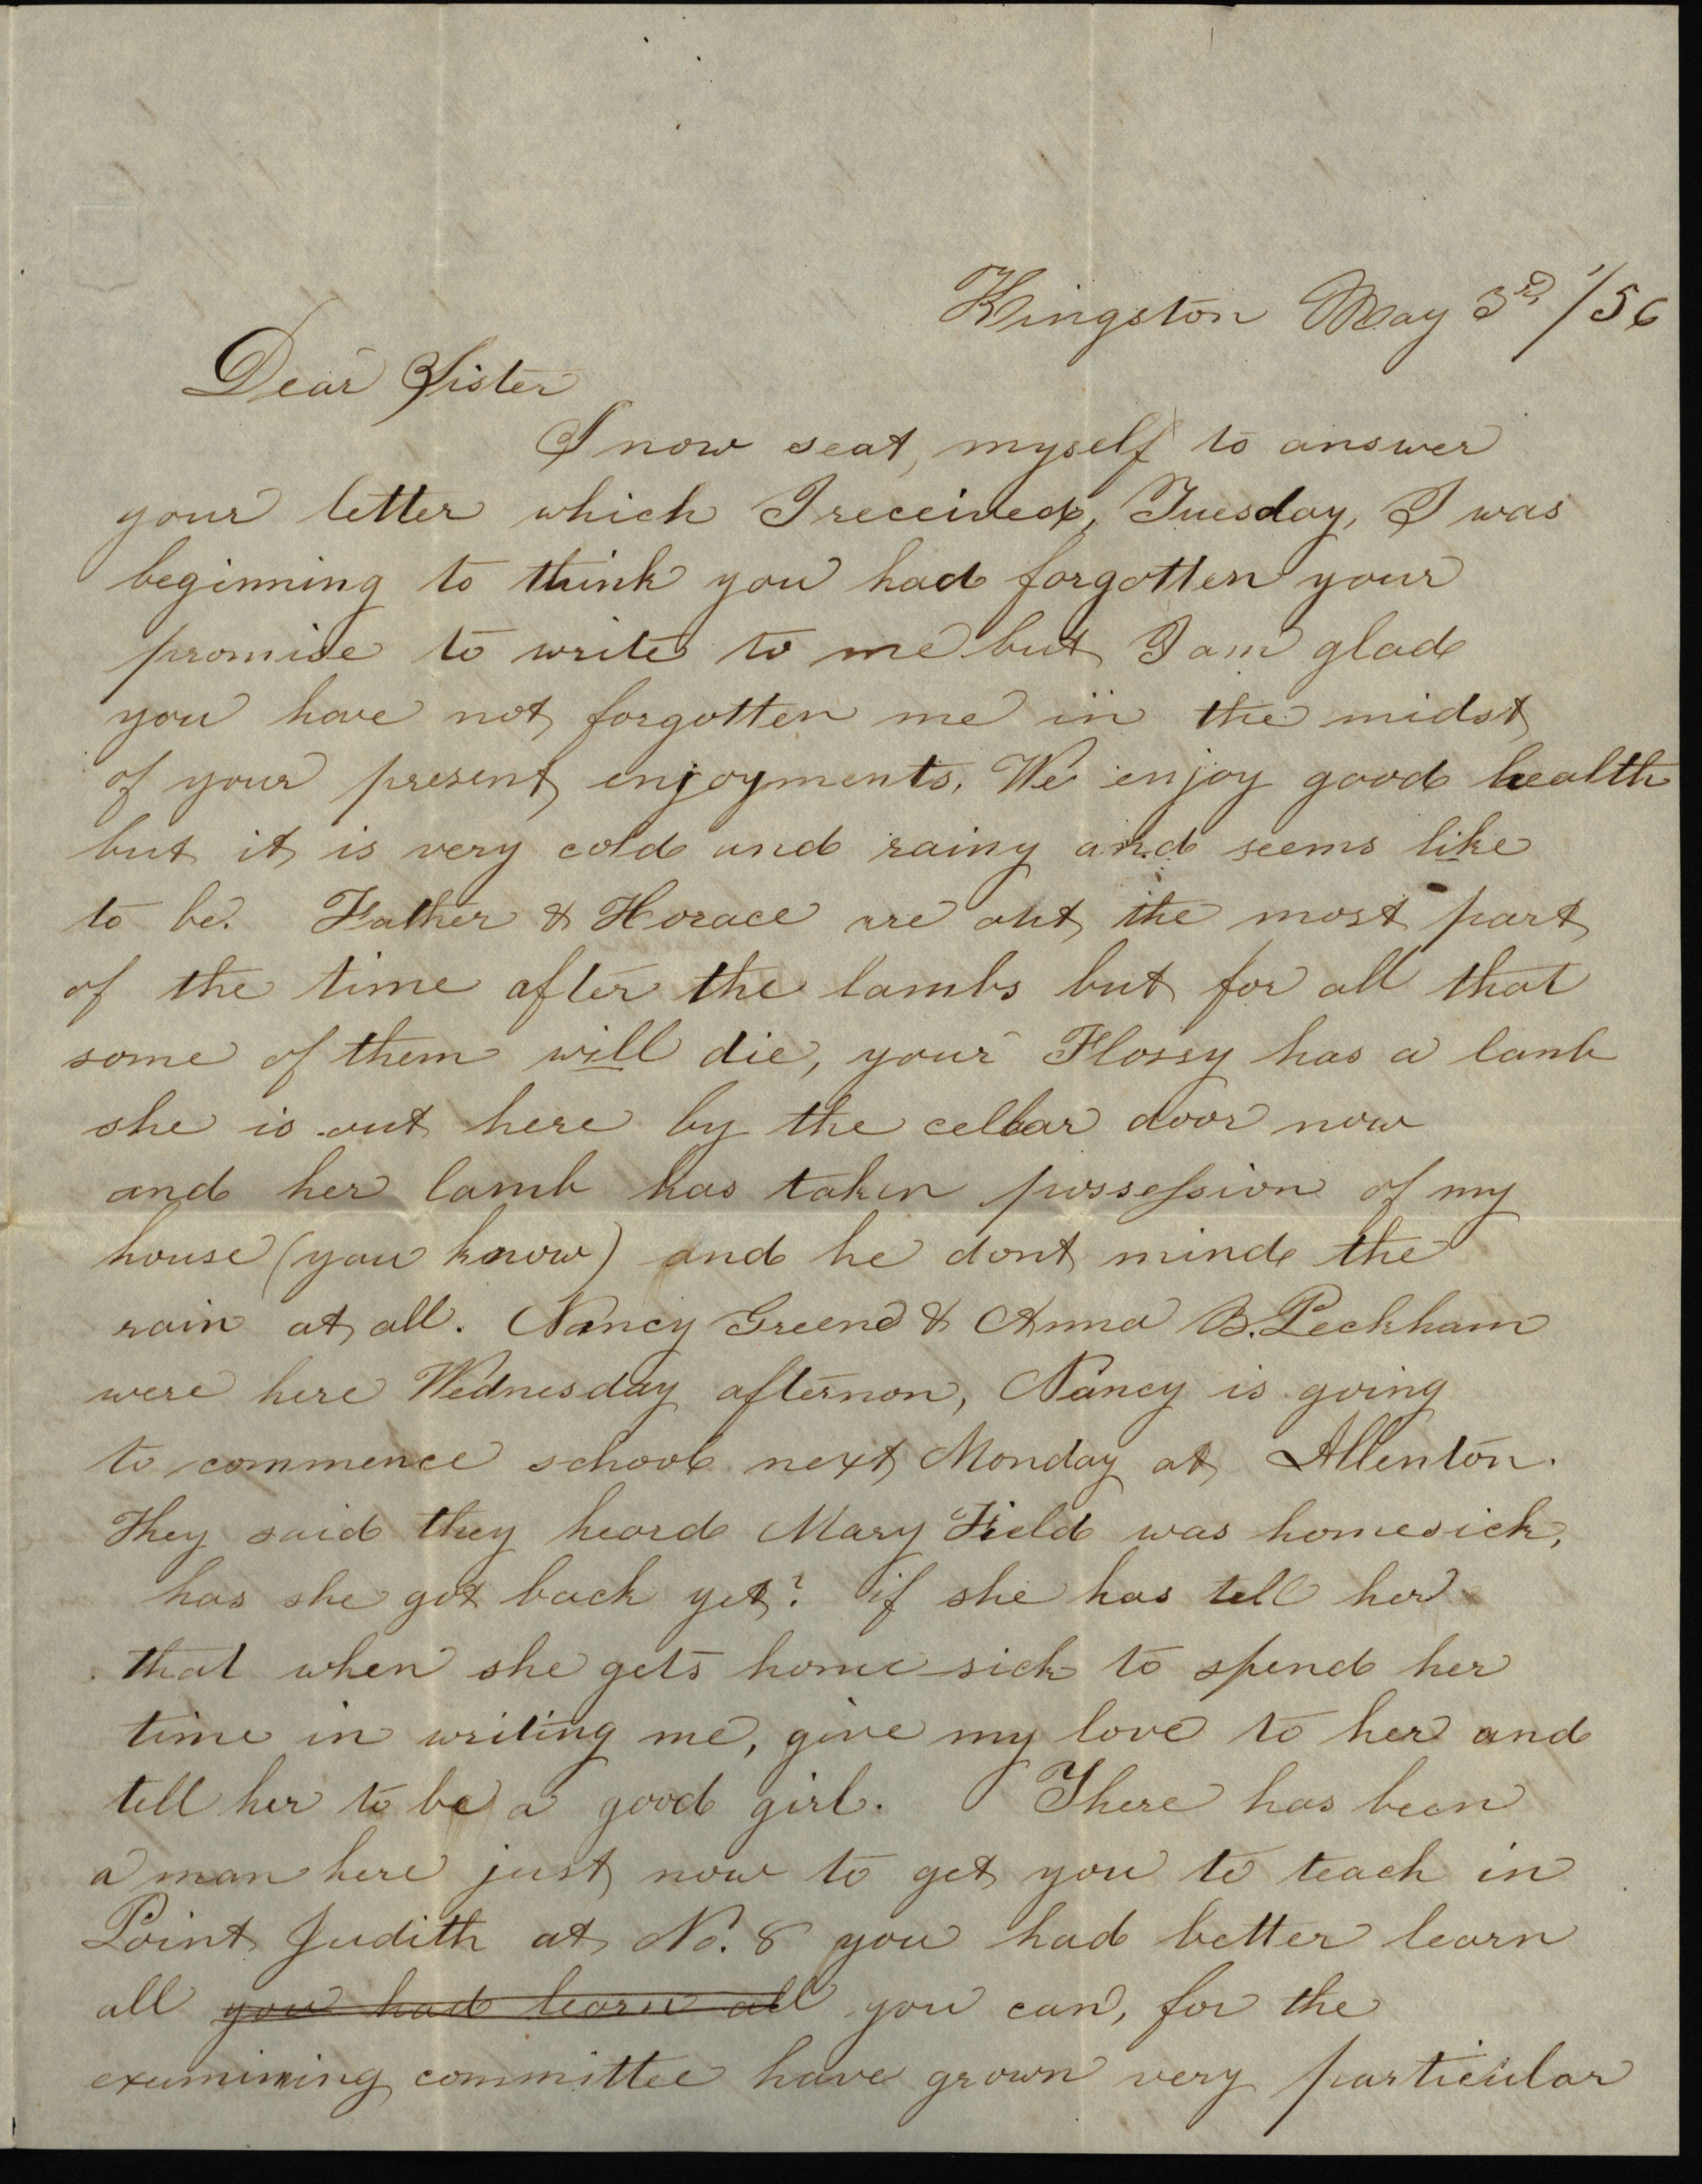 Kingston May 3rd /56
Dear Sister
I now seat, myself to answer
your letter which I received, Tuesday, I was
beginning to think you had forgotten your
promise to write to me but I am glad
you have not forgotten me in the midst
of your present enjoyments. We enjoy good health
but it is very cold and rainy and seems like
to be. Father & Horace are out the most part
of the time after the lambs but for all that
some of them will die, your Flossy has a lamb
she is out here by the cellar door now
and her lamb has taken possession of my
house (you know) and he dont mind the
rain at all. Nancy Greene & Anna B. Peckham
were here Wednesday afternon, Nancy is going
to commence school next Monday at Allenton.
They said they heard Mary Field was homesick,
has she got back yet? if she has tell her
that when she gets home sick to spend her
time in writing me, give my love to her and
tell her to be a good girl. There has been
a man here just now to get you to teach in
Point Judith at No. 8 you had better learn
all you had learn all you can, for the
examining committee have grown very particular